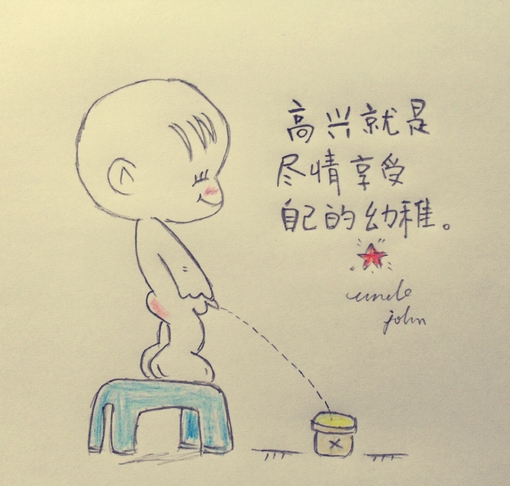 高兴就是
尽情享受
自己的幼稚。
uncle
john